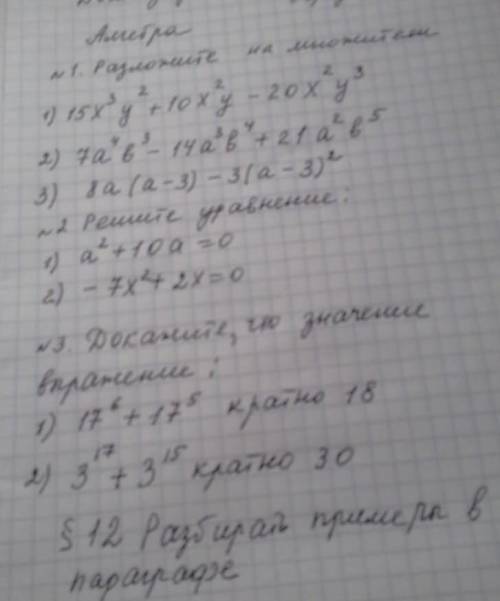 Алгебра
№1. Разложите на множители
1) 15x³y² + 10x²y - 20x²y³
2) 7a⁴b³ - 14a³b⁴ + 21a²b⁵
3) 8a(a-3) - 3(a-3)²
№2 Решите уравнение:
1) a² + 10a = 0
2) -7x² + 2x = 0
№3. Докажите, что значение
выражение:
1) 17⁶ + 17⁵ кратно 18
2) 3¹⁷ + 3¹⁵ кратно 30
§12 Разбирать примеры в
параграфе